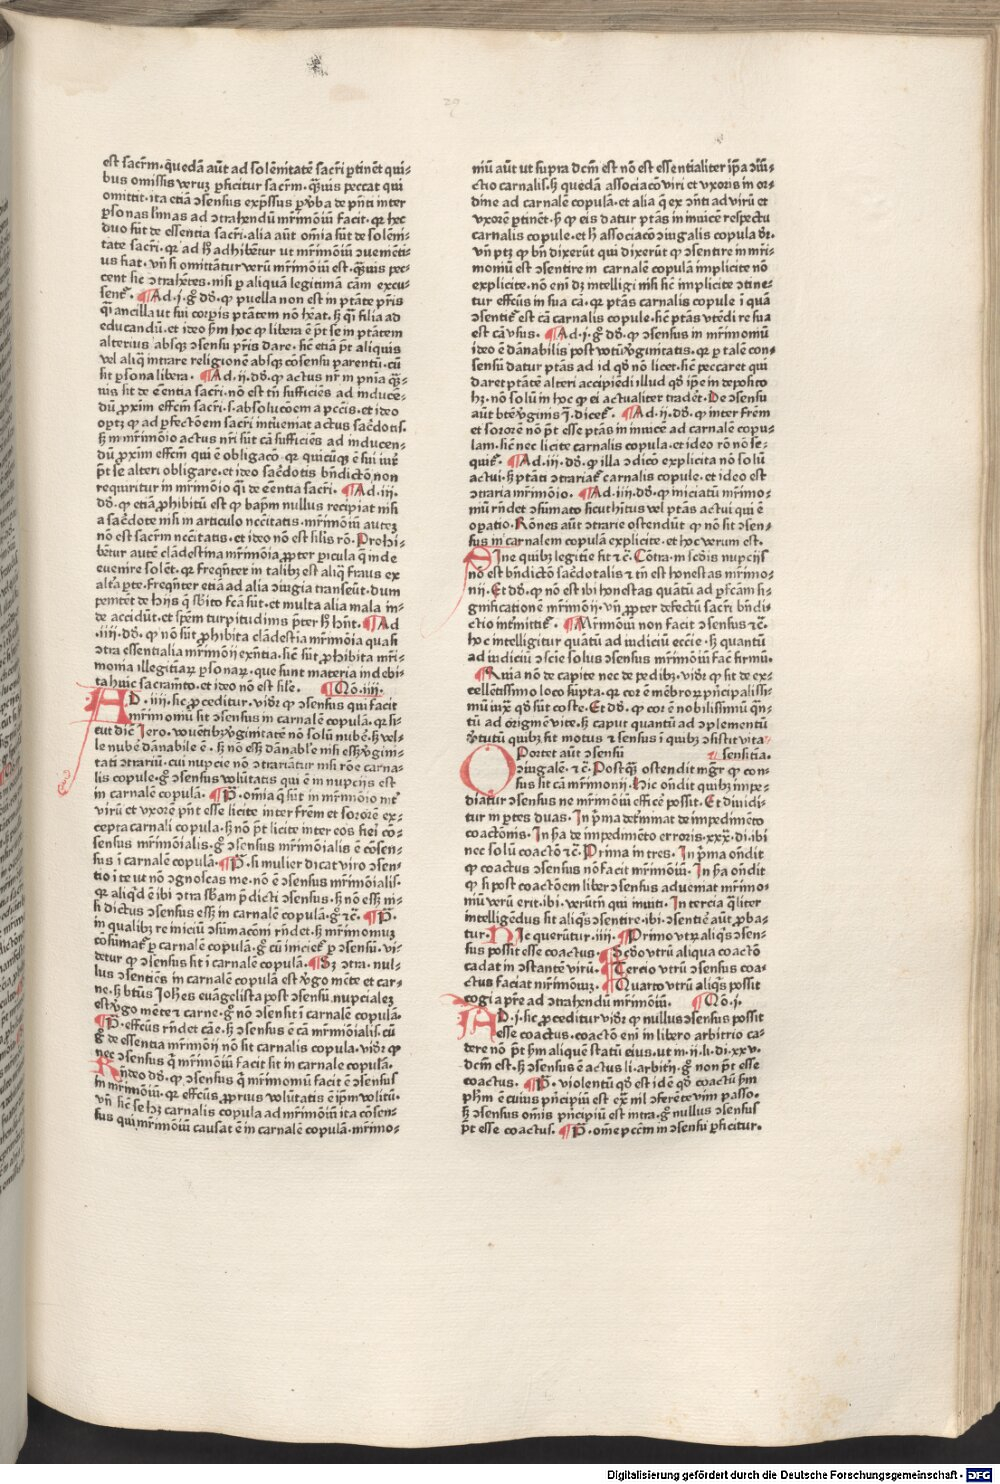 est sacr̄m·q̄uedā aūt ad solēnitatē sacr̄i ꝑtinēt qui-
bus omissis veruꝫ ꝑficitur sacr̄m·q̄uis peccat qui
omittit·ita etiā ↄsensus exp̄ssus ꝑ v̄ba de p̄nti inter
ꝑsonas l̄timas ad ↄtrahēdū mr̄imōiū facit·qꝛ hec
duo sūt de essentia sacr̄i·alia aūt om̄ia sūt de solēni-
tate sacr̄i·qꝛ ad hͦ adhibētur ut mr̄imōiū ↄueniēti-
us fiat·vn̄ si omittātur verū mr̄imōiū est·q̄uis pec-
cent sic ↄtrahētes·nisi ꝑ aliquā legitimā cām excu-
sent᷑·¶Ad·j·gͦ dō·ꝙ puella non est in ptāte pr̄is
q̄si ancilla ut sui corꝑis ptātem nō hēat·sꝫ q̄si filia ad
educandū·et ideo ẜm hoc ꝙ libera ē p̄t se in ptātem
alterius absqꝫ ↄsensu pr̄is dare·sic etiā p̄t aliquis
vel aliq̄ intrare religionē absqꝫ cōsensu parentū·cū
sit ꝑsona libera·¶Ad·ij·dō·ꝙ actus nr̄ in pn̄ia q̄-
uis sit de eēntia sacr̄i·nō est tn̄ sufficiēs ad induce-
dū ꝓxim effcm̄ sacr̄i·s·absolucōem a pccīs·et ideo
optꝫ ꝙ ad ꝑfectōem sacr̄i inteueniat actus sac̄dotis·
sꝫ in mr̄imōio actus nr̄i sūt cā sufficiēs ad inducen-
dū ꝓxim effcm̄ qui ē obligacō·qꝛ quicūqꝫ ē sui iur᷑
p̄t se alteri obligare·et ideo sac̄dotis bn̄dictō non
requiritur in mr̄imōio q̄si de eēntia sacr̄i·¶Ad·iij·
dō·ꝙ etiā ꝓhibitū est ꝙ bap̄m nullus recipiat nisi
a sac̄dote nisi in articulo nēcitatis·mr̄imōiū auteꝫ
nō est sacr̄m nēcitatis·et ideo nō est silis rō·Prohi-
bētur autē clādestina mr̄imōia ꝓpter ꝑicula q̄ inde
euenire solēt·qꝛ freqn̄ter in talibꝫ est aliq̄ fraus ex
alt̄a ꝑte·freqn̄ter etiā ad alia ↄiugia transeūt·dum
penitēt de hijs q̄ sb̄ito fc̄a sūt·et multa alia mala in-
de accidūt·et spēm turpitudinis p̄ter hͦ hn̄t·¶Ad
·iiij·dō·ꝙ nō sūt ꝓhibita clādestia mr̄imōia quasi
ↄtra essentialia mr̄imōij exn̄tia·sic sūt ꝓhibita mr̄i-
monia illegitimaꝝ ꝑsonaꝝ·que sunt materia indebi-
ta huic sacram̄to·et ideo nō est sile·¶Nō·iiij·
AD·iiij·sic ꝓceditur·vidr̄ ꝙ ↄsensus qui facit
mr̄imoniū sit ↄsensus in carnalē copulā·qꝛ si-
cut dic̄ Jero·vouētibꝫ v̄ginitatē nō solū nubē·sꝫ vel-
le nubē dānabile ē·sꝫ nō essꝫ dānabile nisi essꝫ v̄gini-
tati ↄtrariū·cui nupcie nō ↄtrariātur nisi rōe carna-
lis copule·gͦ ↄsensus volūtatis qui ē in nupcijs est
in carnalē copulā·¶P̄·om̄ia q̄ sūt in mr̄imōio int̄
virū et vxorē pn̄t esse licite inter fr̄em et sororē ex-
cepta carnali copula·sꝫ nō p̄t licite inter eos fieri cō-
sensus mr̄imōialis·gͦ ↄsensus mr̄imōialis ē cōsen-
sus ī carnalē copulā·¶P̄·si mulier dicat viro ↄsen-
tio ī te ut nō ↄgnoscas me·nō ē ↄsensus mr̄imōialis·
qꝛ aliq̄d ē ibi ↄtra sb̄am p̄dicti ↄsensus·sꝫ nō essꝫ ni-
si dictus ↄsensus essꝫ in carnalē copulā·gͦ ⁊c̄·¶P̄·
in qualibꝫ re iniciū ↄsumacōni rn̄det·sꝫ mr̄imoniuꝫ
cōsumat᷑ ꝑ carnalē copulā·gͦ cū iniciet᷑ ꝑ ↄsensū·vi-
detur ꝙ ↄsensus sit ī carnalē copulā·¶Sꝫ ↄtra·nul-
lus ↄsentiēs in carnalē copulā est v̄go mēte et car-
ne·sꝫ btūs Joh̄es euāgelista post ↄsensū nupcialeꝫ
est v̄go mēte ⁊ carne·gͦ nō ↄsensit ī carnalē copulā·
¶P̄·effcus rn̄det cāe·sꝫ ↄsensus ē cā mr̄imōialis·cū
gͦ de essentia mr̄imōij nō sit carnalis copula·vidr̄ ꝙ
nec ↄsensus q̄ mr̄imōiū facit sit in carnalē copulā·
Rn̄deo dō·ꝙ ↄsensus q̄ mr̄imoniū facit ē ↄsensus
in mr̄imōiū·qꝛ effcus ꝓprius volūtatis ē ip̄m volitū·
vn̄ sic se hꝫ carnalis copula ad mr̄imōiū ita cōsen-
sus qui mr̄imōiū causat ē in carnalē copulā·mr̄imo-
niū aūt ut supra dcm̄ est nō est essentialiter ip̄a ↄiū-
ctio carnalis·sꝫ quedā associacō viri et vxoris in or-
dine ad carnalē copulā·et alia q̄ ex ↄn̄ti ad virū et
vxorē ꝑtinēt·sꝫ ꝙ eis datur ptās in inuicē respectu
carnalis copule·et hͦ associacō ↄiugalis copula dr̄·
vn̄ ptꝫ ꝙ bn̄ dixerūt qui dixerūt ꝙ ↄsentire in mr̄i-
moniū est ↄsentire in carnalē copulā implicite nō
explicite·nō eni dꝫ intelligi nisi sic implicite ↄtine-
tur effcus in sua cā·qꝛ ptās carnalis copule ī quā
ↄsentit᷑ est cā carnalis copule·sic ptās vtēdi re sua
est cā vsus·¶Ad·j·gͦ dō·ꝙ ↄsensus in mr̄imoniū
ideo ē dānabilis post votū v̄ginitatis·qꝛ ꝑ talē con-
sensū datur ptās ad id qđ nō licet·sic peccaret qui
daret ptātē alteri accipiēdi illud qđ ip̄e in deposito
hꝫ·nō solū in hoc ꝙ ei actualiter tradēt·De ↄsensu
aūt btē v̄ginis ī·dicet᷑·¶Ad·ij·dō·ꝙ inter fr̄em
et sororē nō p̄t esse ptās in inuicē ad carnalē copu-
lam·sic nec licite carnalis copula·et ideo rō nō se-
quit᷑·¶Ad·iij·dō·ꝙ illa ↄdicō explicita nō solū
actui·sꝫ ptāti ↄtrariat᷑ carnalis copule·et ideo est
ↄtraria mr̄imōio·¶Ad·iiij·dō·ꝙ iniciatū mr̄imo-
niū rn̄det ↄsumato sicut hitus vel ptās actui qui ē
oꝑatio·Rōnes aūt ↄtrarie ostendūt ꝙ nō sit ↄsen-
sus in carnalem copulā explicite·et hoc verum est·
SIne quibꝫ legitīe fit ⁊c̄·Cōtra·in scdis nupcijs
nō est bn̄dictō sac̄dotalis ⁊ tn̄ est honestas mr̄imo-
nij·Et dō·ꝙ nō est ibi honestas quātū ad ꝑfc̄am si-
gnificationē mr̄imōij·vn̄ ꝓpter defectū sacr̄i bn̄di-
ctio int̄mittit᷑·¶Mr̄imōiū non facit ↄsensus ⁊c̄·
hoc intelligitur quātū ad iudiciū ecc̄ie·sꝫ quantū
ad iudiciū ↄscie solus ↄsensus mr̄imōiū fac̄ firmū·
¶Quia nō de capite nec de pedibꝫ·vidr̄ ꝙ sit de ex-
cellētissimo loco sūpta·qꝛ cor ē mēbroꝝ pn̄cipalissi-
mū iuxͣ qđ sūt coste·Et dō·ꝙ cor ē nobilissimū q̄n-
tū ad originē vite·sꝫ caput quantū ad ↄplementū
v̄tutū quibꝫ fit motus ⁊ sensus ī quibꝫ ↄsistit vita
OPortet aūt ↄsensū sensitia·
ↄiugalē·⁊c̄·Postq̄ ostendit mgr̄ ꝙ con-
sus sit cā mr̄imonij·Hic on̄dit quibꝫ impe-
diatur ↄsensus ne mr̄imōiū efficē possit·Et diuidi-
tur in ꝑtes duas·In p̄ma det̄minat de impedimēto
coactōnis·In sͣa de impedimēto erroris·xxx·di·ibi
nec solū coactō ⁊c̄·Prima in tres·In p̄ma on̄dit
ꝙ coactus ↄsensus nō facit mr̄imōiū·In sͣa on̄dit
ꝙ si post coactōem liber ↄsensus adueniat mr̄imo-
niū verū erit·ibi·verūtn̄ qui inuiti·In tercia q̄liter
intelligēdus sit aliq̄s ↄsentire·ibi·ↄsentiē aūt ꝓba-
tur·HIc querūtur·iiij·¶Primo vtꝝ aliq̄s ↄsen-
sus possit esse coactus·¶Scd̄o vtrū aliqua coactō
cadat in ↄstantē virū·¶Tercio vtrū ↄsensus coa-
ctus faciat mr̄imōniuꝫ·¶Quarto vtrū aliq̄s possit
cogi a pr̄e ad ↄtrahendū mr̄imōiū·¶Nō·j·
AD·j·sic ꝓceditur vidr̄ ꝙ nullus ↄsensus possit
esse coactus·coactō eni in libero arbitrio ca-
dere nō p̄t ẜm aliquē statū eius·ut in·ij·li·di·xxv·
dcm̄ est·sꝫ ↄsensus ē actus li·arbitrij·gͦ non p̄t esse
coactus·¶P̄·violentū qđ est idē qđ coactū ẜm
ph̄m ē cuius pn̄cipiū est extͣ nil ↄferēte vim passo·
sꝫ ↄsensus om̄is pn̄cipiū est intra·gͦ nullus ↄsensus
p̄t esse coactus·¶P̄·om̄e pccm̄ in ↄsensu ꝑficitur·
Digitalisierung gefördert durch die Deutsche Forschungsgemeinschaft - DFG